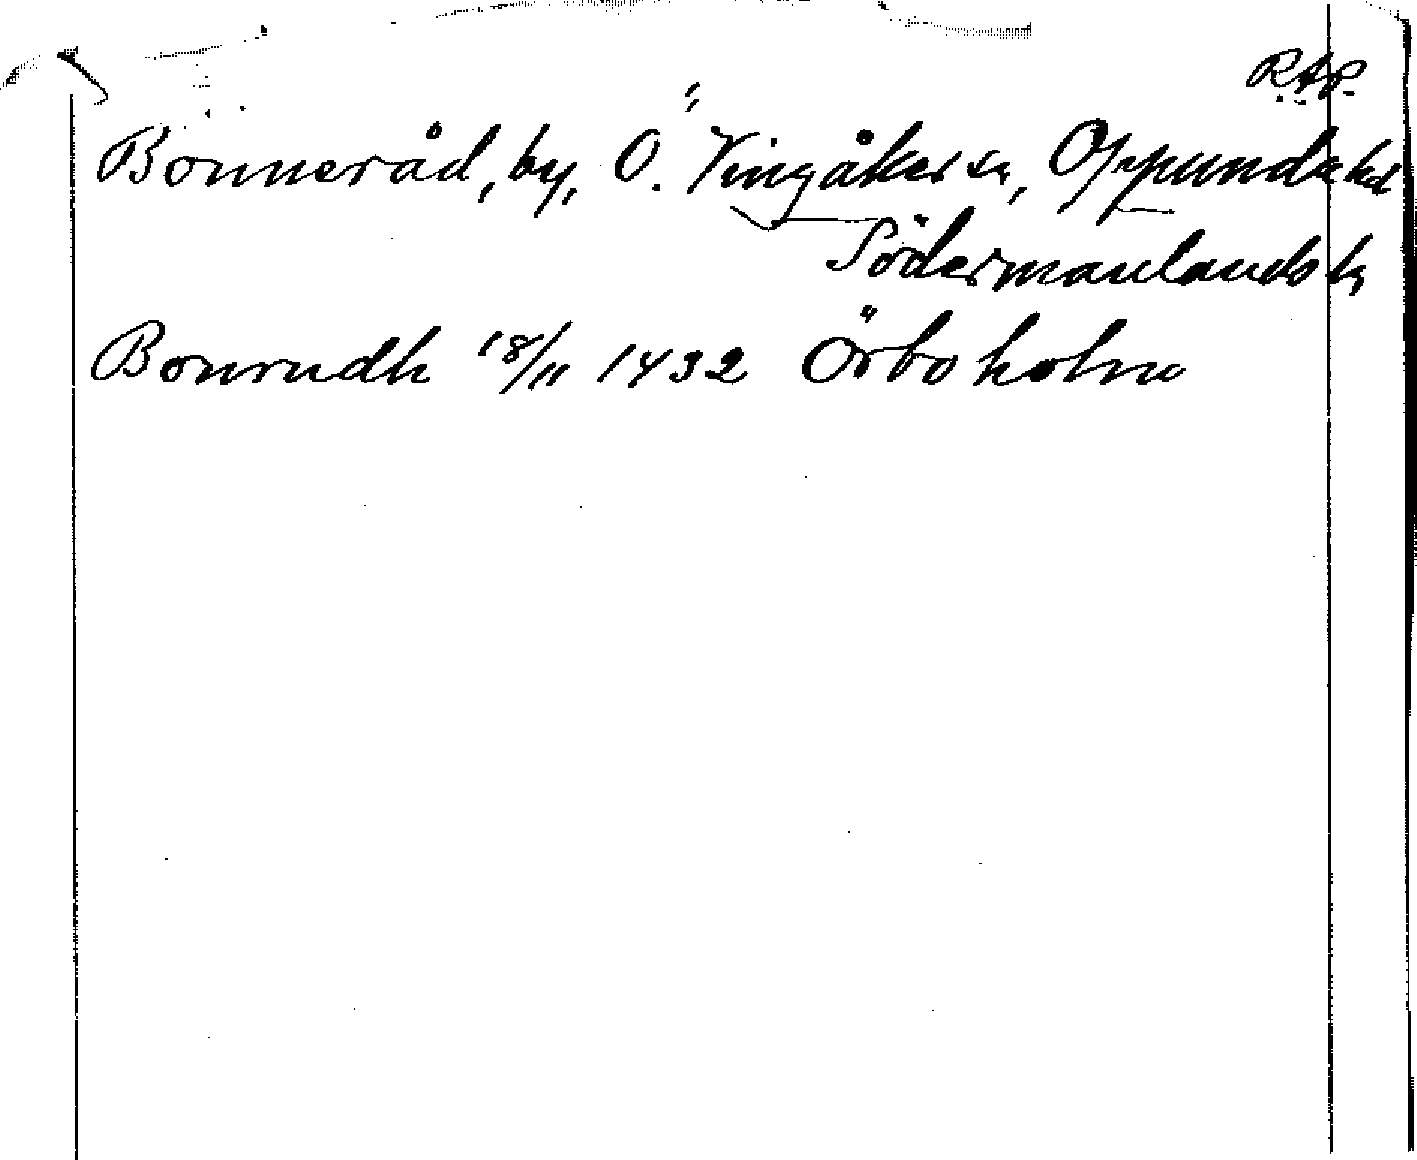 R.A.P.
Bonneråd, by, Ö. Vingåkers sn, Oppunda hd
Södermanlands l.
Bonrudh 18/11 1432 Örboholm